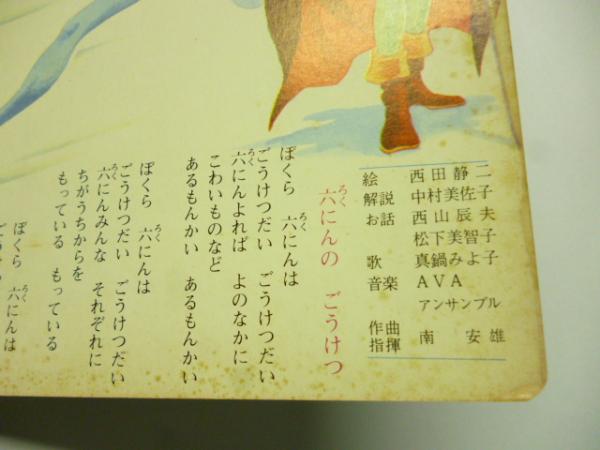 絵 西田静二
解説 中村美佐子
お話 西山辰夫
松下美智子
歌 真鍋みよ子
音楽 AVA
アンサンブル
作曲
指揮 南 安雄
六にんの ごうけつ
ろく
ぼくら 六にんは
ろく
ごうけつだい ごうけつだい
六にんよれば よのなかに
ろく
こわいものなど
あるもんかい あるもんかい
ぼくら 六にんは
ろく
ごうけつだい ごうけつだい
六にんみんな それぞれに
ろく
ちがうちからを
もっている もっている
ぼくら 六にんは
ろく